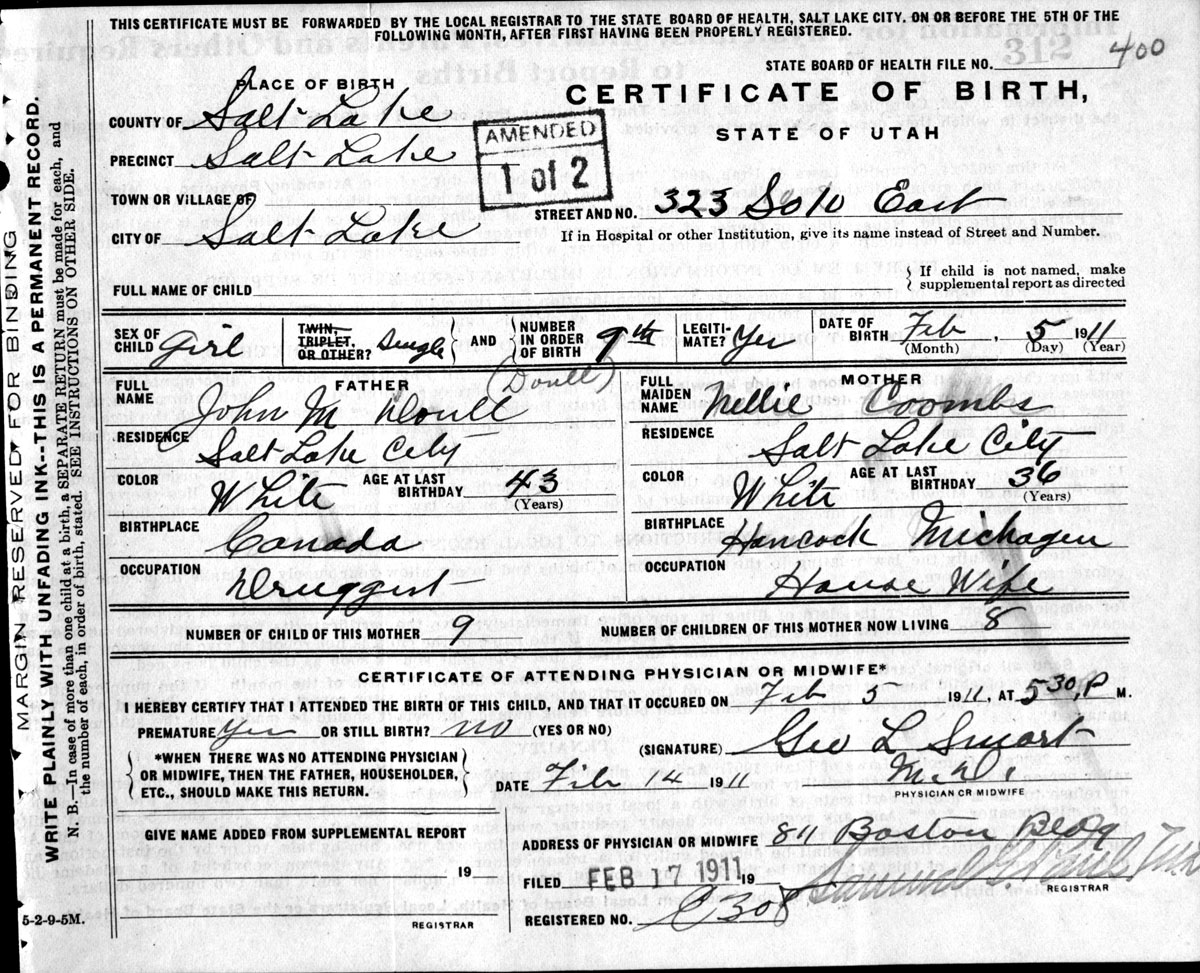 THIS CERTIFICATE MUST BE FORWARDED BY THE LOCAL REGISTRAR TO THE STATE BOARD OF HEALTH, SALT LAKE CITY, ON OR BEFORE THE 5TH OF THE
FOLLOWING MONTH, AFTER FIRST HAVING BEEN PROPERLY REGISTERED.
312
STATE BOARD OF HEALTH FILE NO. 400
PLACE OF BIRTH
CERTIFICATE OF BIRTH,
STATE OF UTAH
COUNTY OF Salt Lake
PRECINCT Salt Lake
AMENDED
1 of 2
TOWN OR VILLAGE OF
STREET AND NO. 323 So 10 East
CITY OF Salt Lake
If in Hospital or other Institution, give its name instead of Street and Number.
FULL NAME OF CHILD
If child is not named, make
supplemental report as directed
SEX OF CHILD Girl
TWIN, TRIPLET, OR OTHER? Single
AND NUMBER IN ORDER OF BIRTH 9th
LEGITIMATE? Yes
DATE OF BIRTH Feb, 5 1911
(Month) (Day) (Year)
FATHER
(Doull)
FULL NAME John M Doull
RESIDENCE Salt Lake City
COLOR White AGE AT LAST BIRTHDAY 43 (Years)
BIRTHPLACE Canada
OCCUPATION Druggist
MOTHER
FULL MAIDEN NAME Nellie Coombs
RESIDENCE Salt Lake City
COLOR White AGE AT LAST BIRTHDAY 36 (Years)
BIRTHPLACE Hancock Michagen
OCCUPATION House Wife
NUMBER OF CHILD OF THIS MOTHER 9
NUMBER OF CHILDREN OF THIS MOTHER NOW LIVING 8
CERTIFICATE OF ATTENDING PHYSICIAN OR MIDWIFE*
I HEREBY CERTIFY THAT I ATTENDED THE BIRTH OF THIS CHILD, AND THAT IT OCCURED ON Feb 5 1911, AT 5 30, P M.
PREMATURE Yes OR STILL BIRTH? no (YES OR NO)
(SIGNATURE) Geo L Smart
M.D.
PHYSICIAN OR MIDWIFE
*WHEN THERE WAS NO ATTENDING PHYSICIAN
OR MIDWIFE, THEN THE FATHER, HOUSEHOLDER,
ETC., SHOULD MAKE THIS RETURN.
DATE Feb 14 1911
GIVE NAME ADDED FROM SUPPLEMENTAL REPORT
19
REGISTRAR
ADDRESS OF PHYSICIAN OR MIDWIFE 811 Boston Bldg
FILED FEB 17 1911 19
Samuel
REGISTRAR
REGISTERED NO. 308
5-2-9-5M.
MARGIN RESERVED FOR BINDING
WRITE PLAINLY WITH UNFADING INK--THIS IS A PERMANENT RECORD.
N. B.—In case of more than one child at a birth, a SEPARATE RETURN must be made for each, and
the number of each, in order of birth, stated. SEE INSTRUCTIONS ON OTHER SIDE.